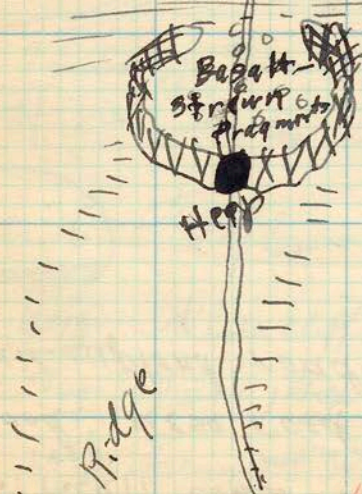 Basalt-
strewn
fragments
Heap
Ridge